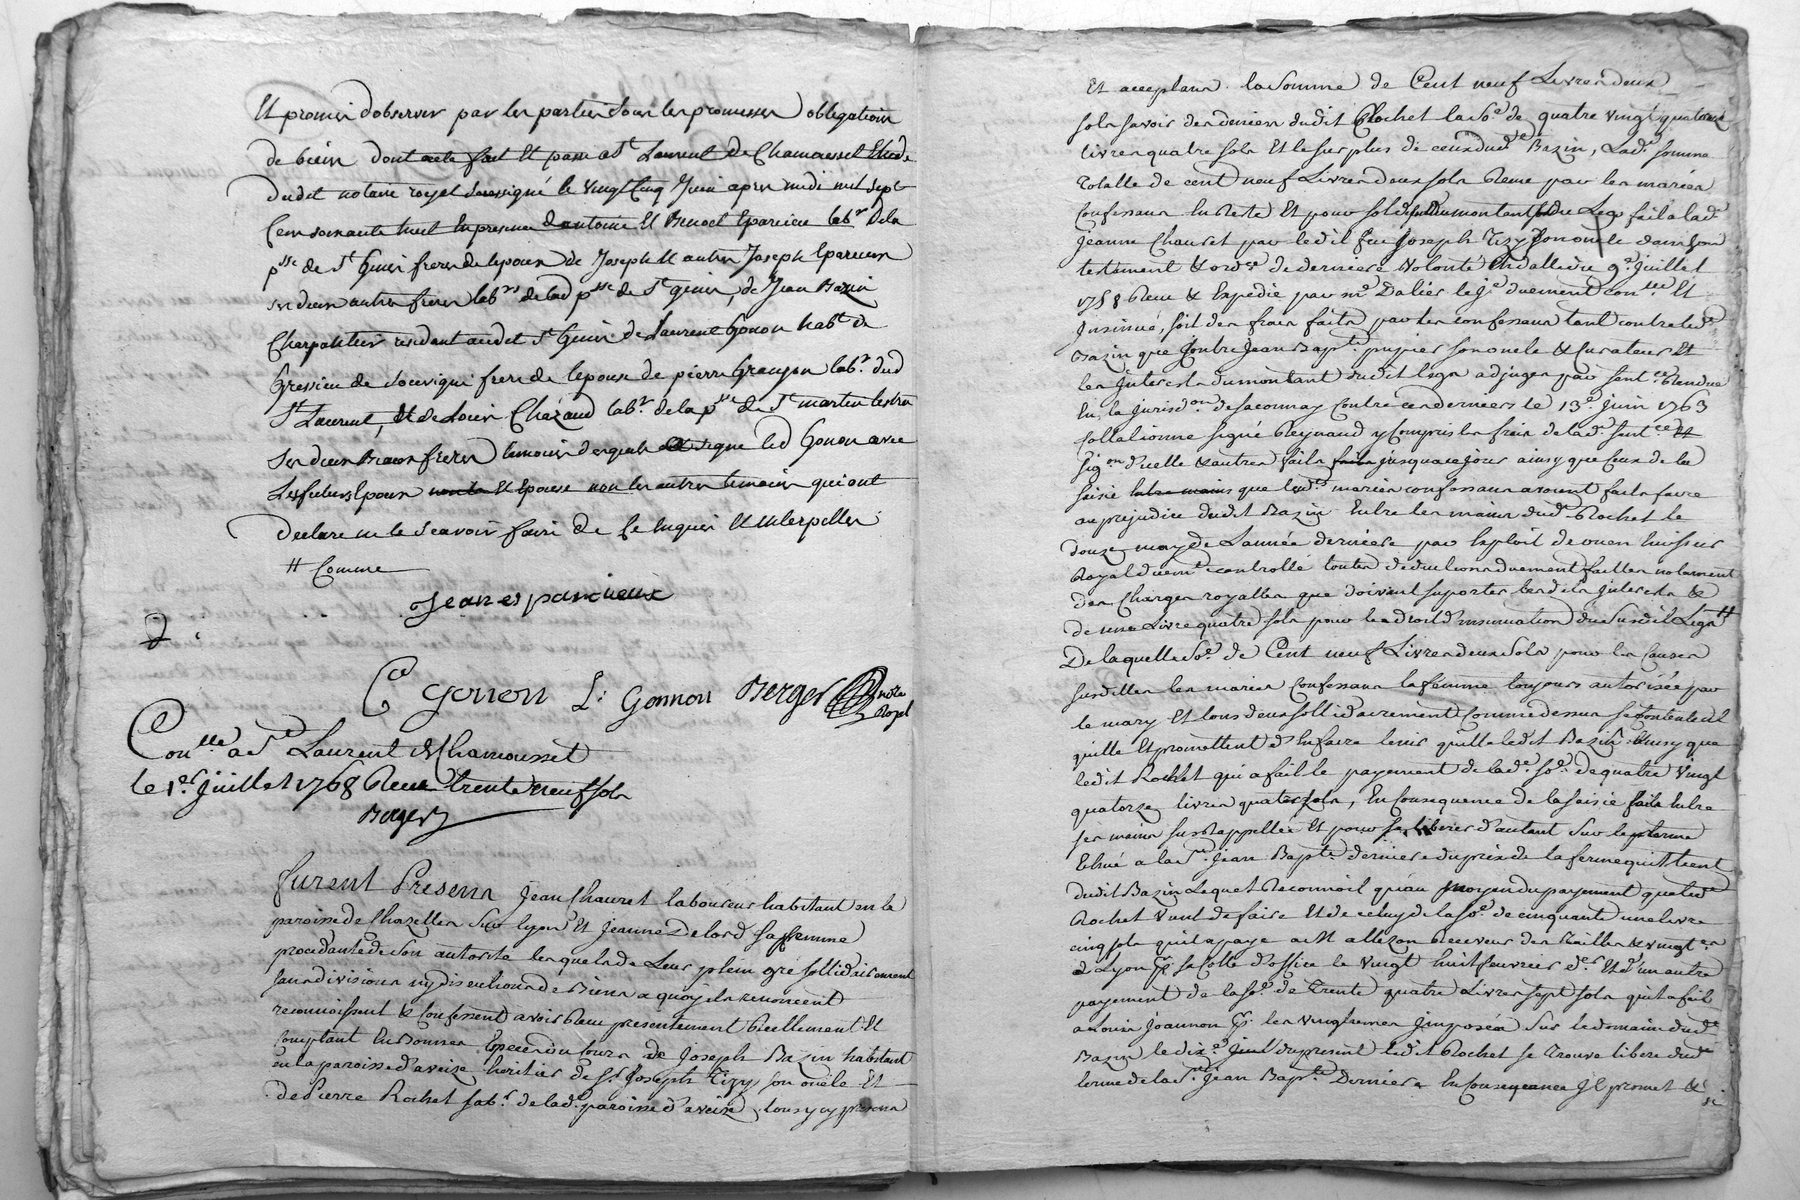 Et promis d'observer par les parties sous les promesses obligations
de biens dont acte fait et passé a St Laurent de Chamousset Etude
dudit notaire royal soussigné le vingt cinq Juin apres midi mil sept
Cens soixante huit En presence d'antoine Et Benoit Eparcieu lab.r de la
p.sse de St Genis freres de lepoux de Joseph Et autre Joseph Eparcieu
ses deux autres freres lab.rs de lad p.sse de St genis, de Jean Bazin
Charpentier residant audit St Genis de Laurent Gonon hab.t de
Gressieu de Souvigni frere de lepouse de pierre Granjon lab.r dud
St Laurent, Et de Louis Chazaud lab.r de la p.sse de St martin lestra
temoins desquels a signé led Gonon avec
Les futurs Epoux Et Epouse non les autres temoins qui ont
Declaré ne le Scavoir faire de ce Enquis Et interpellés
# Comme
Jean esparcieux
C gonon L: Gonnon Berger not.re Royal
Con.llé a St Laurent de Chamousset
le 1.er Juillet 1768 Recu trente neuf sols
Berger
furent Presens Jean Chauvet laboureur habitant en la
paroisse de Chazelles Sur lyon Et Jeanne Delord sa femme
procedante de Son autorité lesquels de Leur plein gré sollidairement
sans division ny discution de Biens a quoy ils renoncent
reconnoissent & Confessent avoir Recu presentement Reellement Et
Comptant En Bonnes Especes du Cours de Joseph Bazin habitant
en la paroisse d'aveize heritier de Sr Joseph Tizy son oncle Et
de Pierre Rochet lab.r de lad. paroisse d'aveize, tous y cy presens
Et acceptans la Somme de Cent neuf Livres deux
sols savoir des deniers dudit Rochet la So.e de quatre vingt quatorze
livres quatre sols Et le surplus de ceux dud. Bazin, Lad.e somme
Totalle de cent neuf Livres deux sols Recue par les mariés
Confessans En Reste Et pour solde du montant du Legs fait a lad.
Jeanne Chauvet par ledit feu Joseph Tizy Son oncle dans son
testament & ord.ce de derniere Volonté En datte du 9.e Juillet
1758 Recu & Expedié par m.e Dalier le J.e duement con.llé Et
Insinué, soit des frais faits par les confessans tant contre led.
Bazin que Contre Jean Bap.te pupier son oncle & Curateur Et
les Interests du montant dudit legs adjugés par sent.ce Rendue
En la jurisd.on de Saconnay Contre ces derniers le 13.e Juin 1763
Collationné signé Reynaud y Compris les frais de lad. sent.ce Et
sig.on d'icelle & autres faits jusqua ce jour ainsy que Ceux de la
saisie que lesd. mariés confessans avoient fait faire
au prejudice dudit Bazin Entre les mains dud. Rochet le
douze may de Lannée derniere par Exploit de huissier
Royal duem.t controllé toutes deductions duement faittes notament
des Charges royalles que doivent suporter lesdits Interests &
de une Livre quatre sols pour le droit d'insinuation du susdit Legs #
De laquelle So.e de Cent neuf Livres deux Sols pour les Causes
susdittes les mariés Confessans la femme toujours autorisée par
le mary Et tous deux sollidairement Comme dessus se Contentent
quitte Et promettent d'En faire tenir quitte ledit Bazin Ainsy que
ledit Rochet qui a fait le payement de lad.e So.e de quatre vingt
quatorze livres quatre sols, En Consequence de la saisie faite Entre
ses mains sus Rappellée Et pour se liberer d'autant Sur le terme
Echué a la St Jean Bapt.e derniere du prix de la ferme qu'il tient
dudit Bazin Lequel Reconnoit qu'au moyen du payement que led.
Rochet Vient de faire Et de celuy de la So.e de cinquante une livre
cinq sols qu'il a payé a M.r allezon Receveur des Tailles & vingt.es
de Lyon sa Cotte d'office le vingt huit fevrier d.er Et d'un autre
payement de la So.e de Trente quatre Livres sept sols qu'il a fait
a Louis Joannon les vingtiemes Imposés Sur le domaine dud.
Bazin le dix du present ledit Rochet se Trouve libéré dud.
terme de la St Jean Bap.te Derniere En Consequence Il promet &